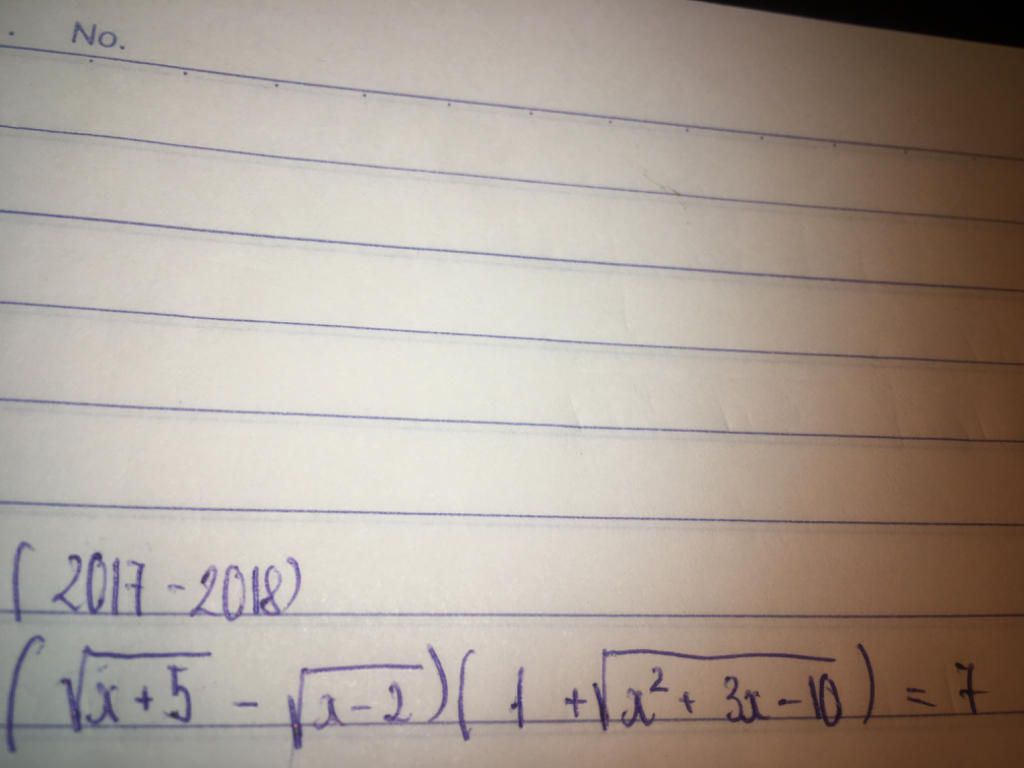 No.
(2017-2018)
(√x+5 - √x-2)(1 + √x² + 3x - 10) = 7